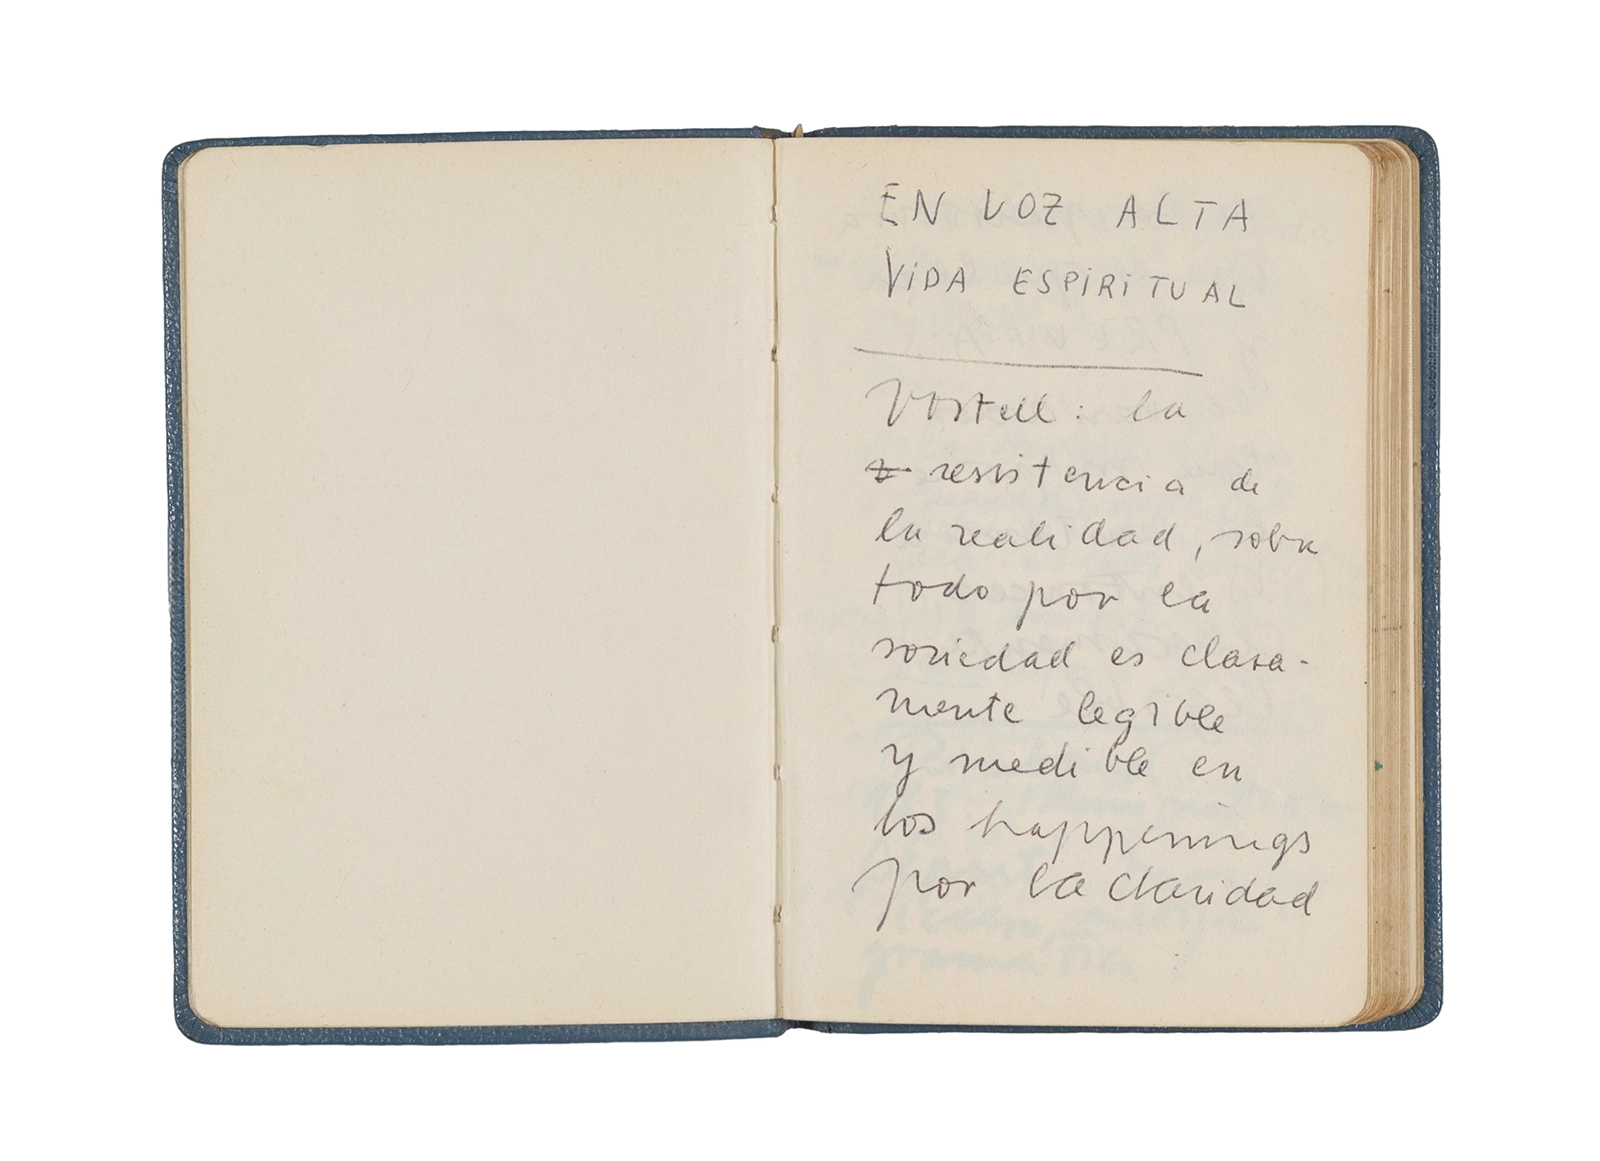 EN VOZ ALTA
ViDA ESPiRiTUAL
Vostell: la
resistencia de
la realidad, sobre
todo por la
sociedad es clara-
mente legible
y medible en
los happenings
por la claridad